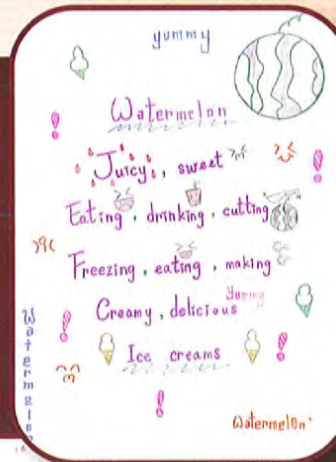 yummy
Watermelon
Juicy, sweet
Eating, drinking, cutting
Freezing, eating, making
Yummy
Creamy, delicious
Ice creams
Watermelon
Watermelon